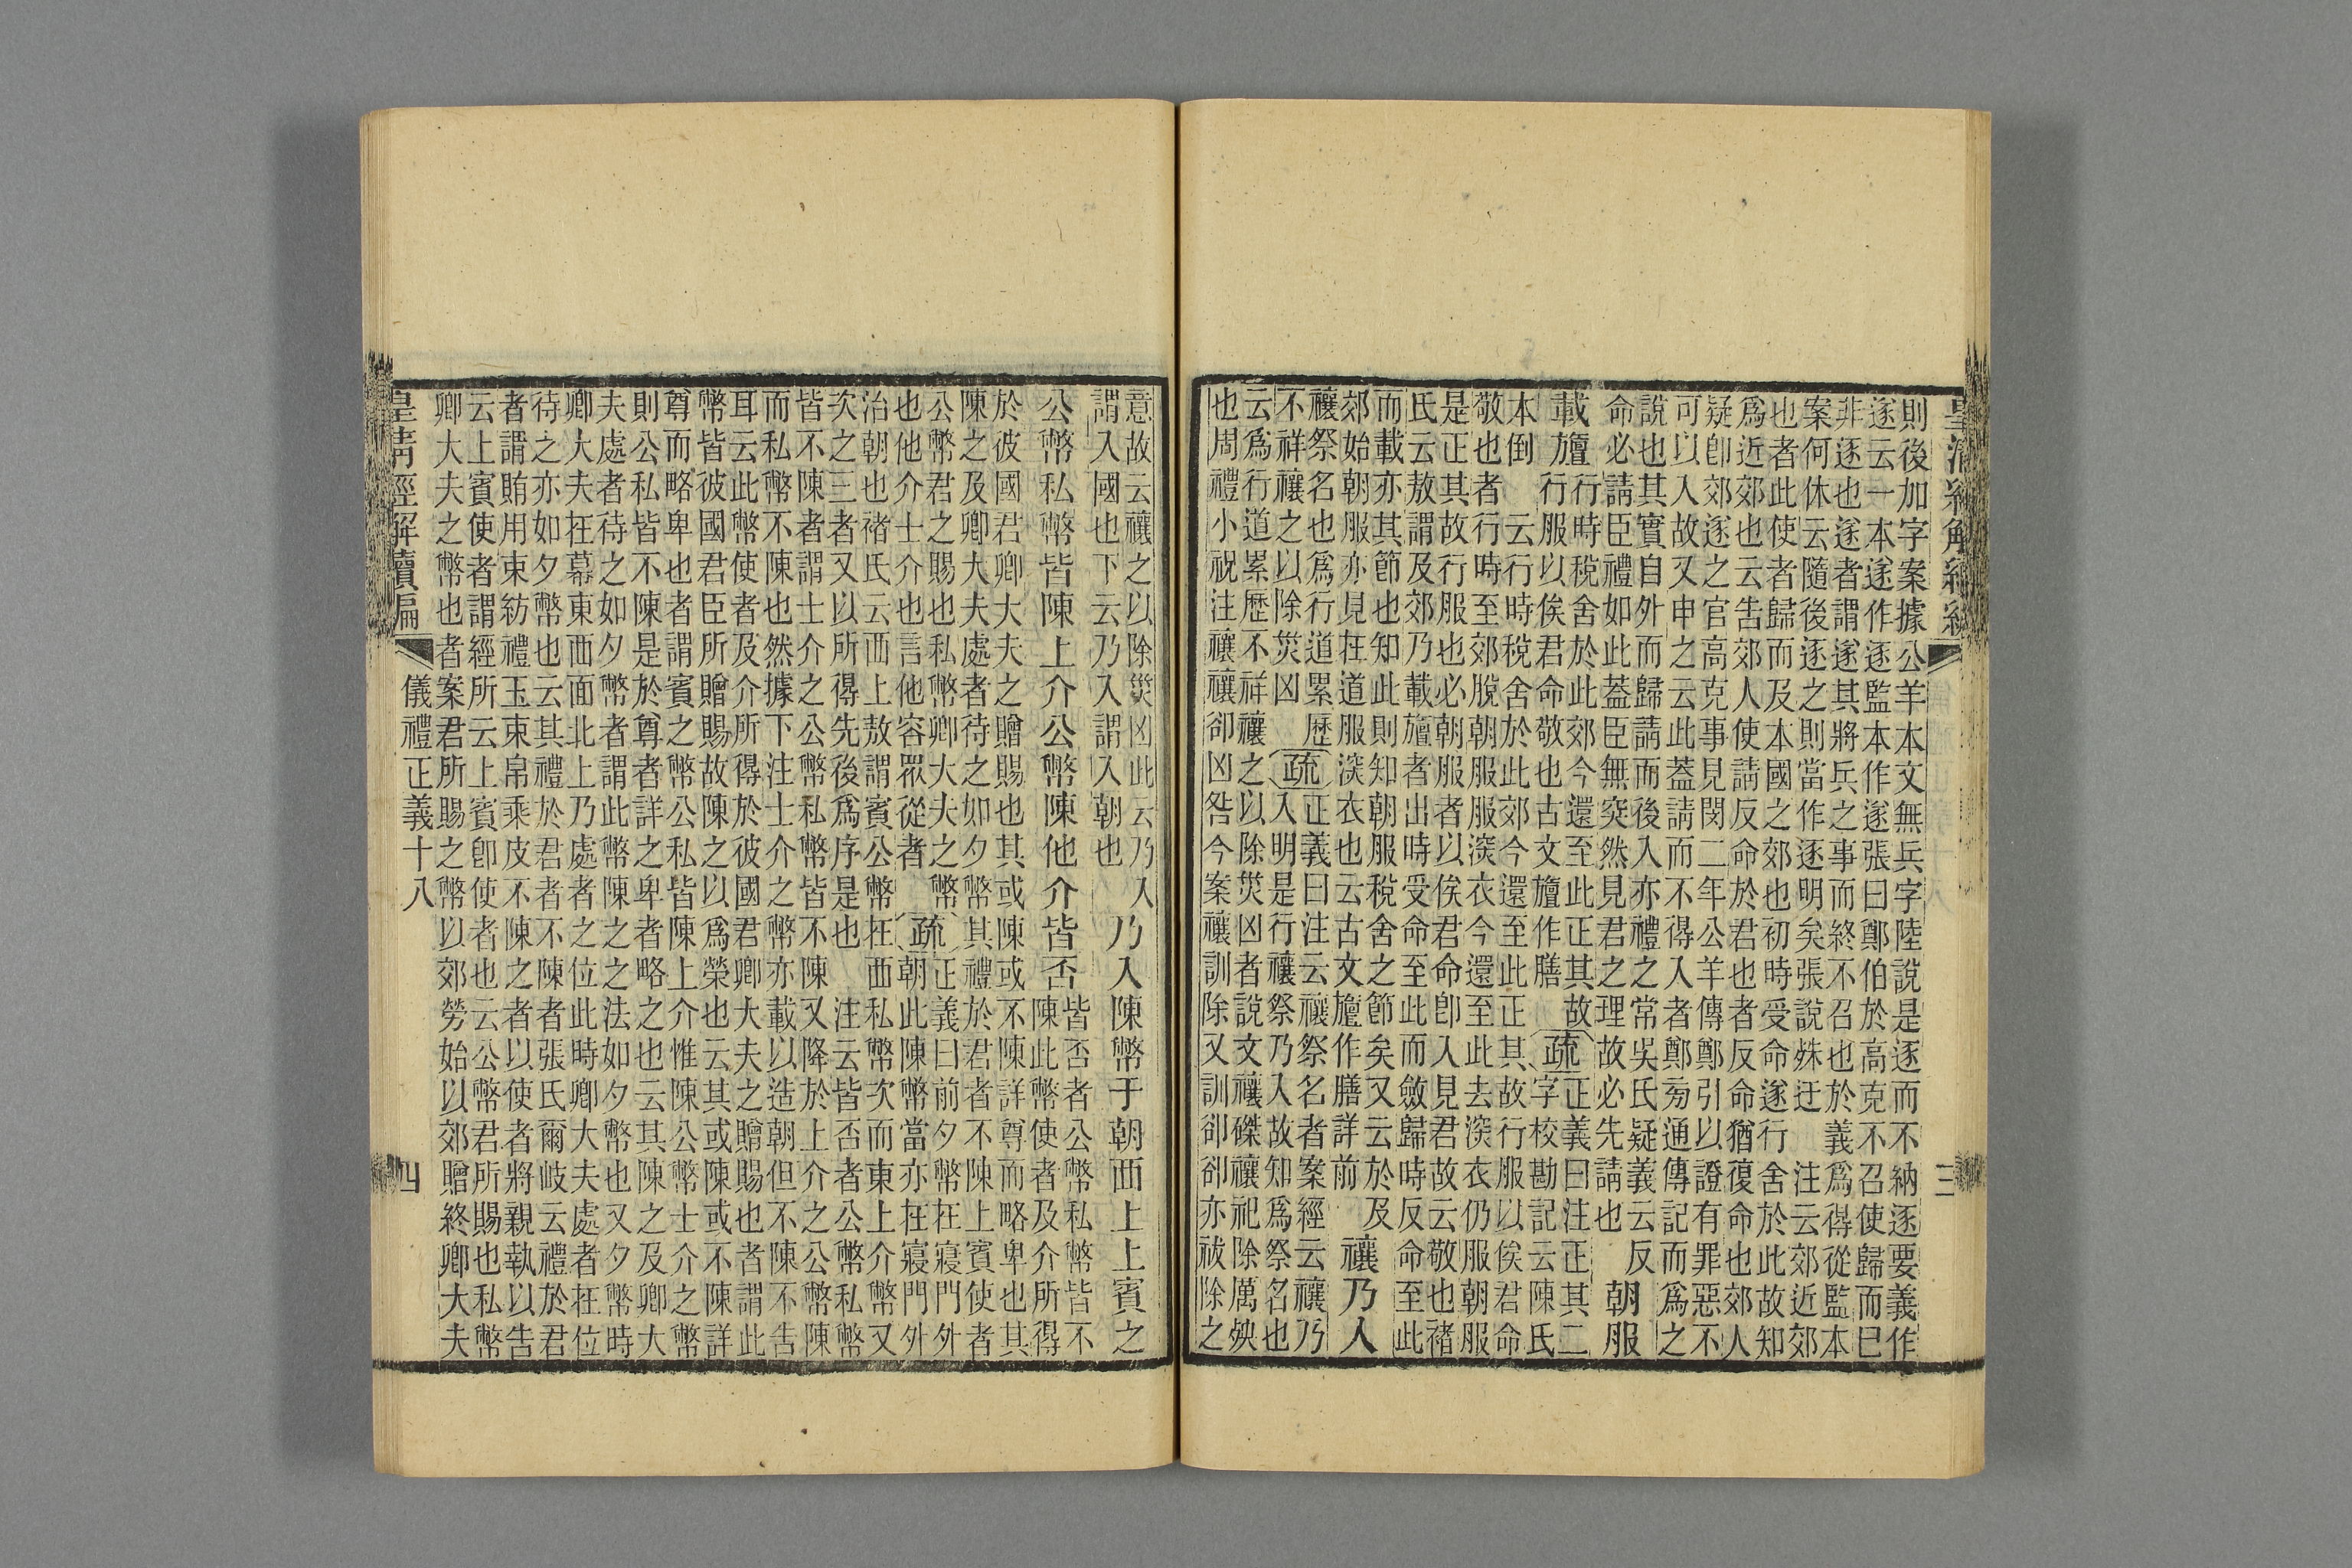 則後加字案據公羊本文無兵字陸說是逐而不納逐要義作
遂云一本遂作逐監本作遂張曰鄭伯於高克不召使歸而巳
非逐也遂者謂遂其將兵之事而終不召也於義爲得從監本
案何休云隨後逐之則當作逐明矣張說姝迂　注云郊近郊
也者此使者歸而及本國之郊也初時受命遂行舍於此故知
爲近郊也云告郊人使請反命於君也者反命猶復命也郊人
疑卽郊遂之官高克事見閔二年公羊傳鄭引以證有罪惡不
可以入故又申之云此蓋請而不得入者鄭旁通傳記而爲之
說也其實自外而歸請而後入亦禮之常吳氏疑義云反
命必請臣禮如此蓋臣無突然見君之理故必先請也　朝服
載旜　行時稅舍於此郊今還至此正其故
行服以俟君命敬也古文旜作膳　疏　正義曰注正其二
字校勘記云陳氏
本倒　云行時稅舍於此郊今還至此正其故行服以俟君命
敬也者行時至郊脫朝服服深衣今還至此去深衣仍服朝服
是正其故行服也必朝服者以俟君命卽入見君故云敬也褚
氏云敖謂及郊乃載旜者出時受命至此而斂歸時反命至此
而載亦其節也知此則知朝服稅舍之節矣又云於及
郊始朝服亦見在道服深衣也云古文旜作膳詳前　禳乃入
禳祭名也爲行道累歷
不祥禳之以除災凶　疏　正義曰注云禳祭名者案經云禳乃
入明是行禳祭乃入故知爲祭名也
云爲行道累歷不祥禳之以除災凶者說文禳磔禳祀除厲殃
也周禮小祝注禳禳卻凶咎今案禳訓除又訓卻卻亦祓除之
三
意故云禳之以除災凶此云乃入
謂入國也下云乃入謂入朝也　乃入陳幣于朝西上上賓之
公幣私幣皆陳上介公幣陳他介皆否　皆否者公幣私幣皆不
陳此幣使者及介所得
於彼國君卿大夫之贈賜也其或陳或不陳詳尊而略卑也其
陳之及卿大夫處者待之如夕幣其禮於君者不陳上賓使者
公幣君之賜也私幣卿大夫之幣
也他介士介也言他容眾從者　疏　正義曰前夕幣在寢門外
朝此陳幣當亦在寢門外
治朝也褚氏云西上敖謂賓公幣在西私幣次而東上介幣又
次之三者又以所得先後爲序是也　注云皆否者公幣私幣
皆不陳者謂士介之公幣私幣皆不陳又降於上介之公幣陳
而私幣不陳也然據下注士介之幣亦載以造朝但不陳不告
耳云此幣使者及介所得於彼國君卿大夫之贈賜也者謂此
幣皆彼國君臣所贈賜故陳之以爲榮也云其或陳或不陳詳
尊而略卑也者謂賓之幣公私皆陳上介惟陳公幣士介之幣
則公私皆不陳是於尊者詳之卑者略之也云其陳之及卿大
夫處者待之如夕幣者謂此幣陳之之法如夕幣也又夕幣時
卿大夫在幕東西面北上乃處者之位此時卿大夫處者在位
待之亦如夕幣也云其禮於君者不陳者張氏爾岐云禮於君
者謂賄用束紡禮玉束帛乘皮不陳之者以使者將親執以告
云上賓使者謂經所云上賓卽使者也云公幣君所賜也私幣
卿大夫之幣也者案君所賜之幣以郊勞始以郊贈終卿大夫
皇清經解續編　儀禮正義十八　四